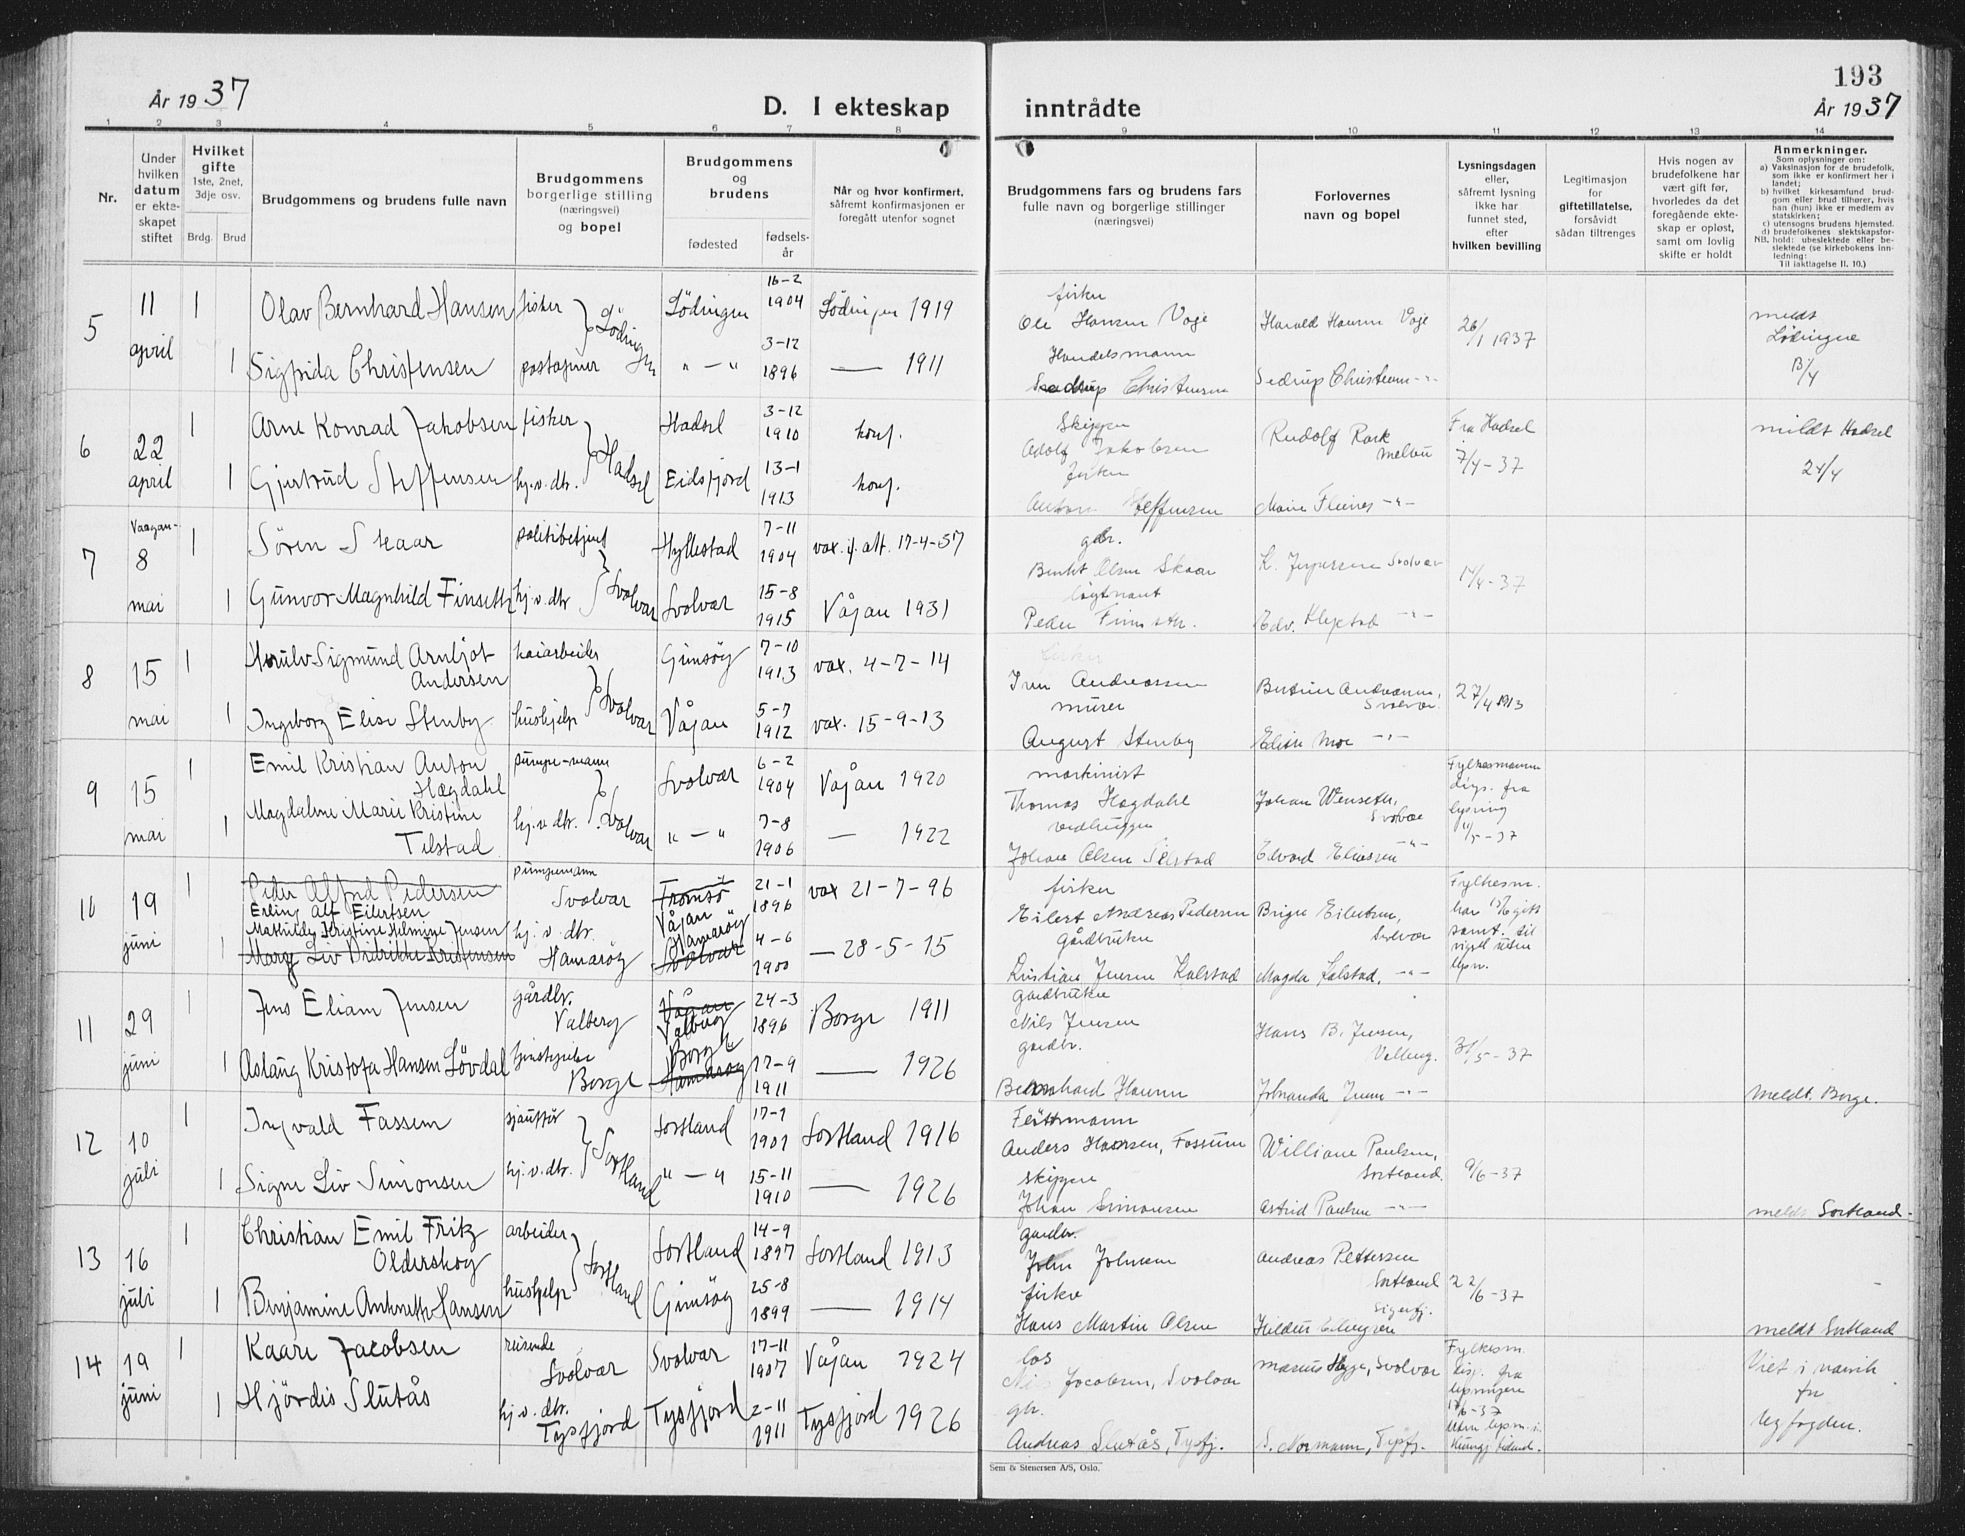 193
År 1937
D. I ekteskap inntrådte
År 1937
1 2 3 4 5 6 7 8 9 10 11 12 13 14
Nr.
Under hvilken datum er ekteskapet stiftet
Hvilket gifte 1ste, 2net, 3dje osv.
Brdg. Brud
Brudgommens og brudens fulle navn
Brudgommens borgerlige stilling (næringsvei) og bopel
Brudgommens og brudens
fødested
fødselsår
Når og hvor konfirmert, såfremt konfirmasjonen er foregått utenfor sognet
Brudgommens fars og brudens fars fulle navn og borgerlige stillinger (næringsvei)
Forlovernes navn og bopel
Lysningsdagen eller, såfremt lysning ikke har funnet sted, efter hvilken bevilling
Legitimasjon for giftetillatelse, forsåvidt sådan tiltrenges
Hvis nogen av brudefolkene har vært gift før, hvorledes da det foregående ekteskap er opløst, samt om lovlig skifte er holdt
Anmerkninger.
Som oplysninger om:
a) Vaksinasjon for de brudefolk, som ikke er konfirmert her i landet;
b) hvilket kirkesamfund brudgom eller brud tilhører, hvis han (hun) ikke er medlem av statskirken;
c) utensogns brudens hjemsted.
d) brudefolkenes slektskapsforhold: ubeslektede eller beslektede (se kirkebokens innledning:
NB.
Til iakttagelse II. 10.)
5 11 april 1 Olav Bernhard Hansen fisker Lödingen 16-2 1904 Lödingen 1919 fisker Ole Hansen Voje Harald Hansen Voje 26/1 1937 meldt Lödingen 13/4
1 Sigfrida Christensen Lödingen " — " 3-12 1896 — 1911 Handelsmann Sedrup Christensen Sedrup Christensen -"-
6 22 april 1 Arne Konrad Jakobsen fisker Hadsel Hadsel 3-12 1910 konf. Skipper Adolf Jakobsen Rudolf Rask Melbu Fra Hadsel 7/4-37 meldt Hadsel 24/4
1 Gjertrud Steffensen hj.v.dtr. Eidsfjord 13-1 1913 konf. fisker Anton Steffensen Marie -"-
7 Vaagan 8 mai 1 Sören Skaar politibetjent Svolvær Hyllestad 7-11 1904 vax. if. att. 17-4-37 gbr. Skaar K. Jespersen Svolvær 17/4-37
1 Gunvor Magnhild Finseth hj.v.dtr Svolvær 15-8 1915 Vågan 1931 löytnant Peder Finseth. Edv. -"-
8 15 mai 1 Sigmund Arnljot Andersen kaiarbeider Svolvær Gimsöy 7-10 1913 vax. 4-7-14 fisker Andreassen Svolvær 27/4 1913
1 Ingeborg Elise Stenby hushjelp Vågan 5-7 1912 vax. 15-9-13 murer August Stenby Elise Moe -"-
9 15 mai 1 Emil Kristian Anton Hægdahl pumpe-mann Svolvær Svolvær 6-2 1904 Vågan 1920 maskinist Thomas Hægdahl Johan Wenseth, Svolvær Fylkesmannen disp. fra lysning 11/5-37
1 Magdalene Marie Kristine Tilstad hj.v.dtr. " — " 7-8 1906 — 1922 vedhugger Johan Olsen Tilstad Edvard Eliassen -"-
10 19 juni 1 Peder Alfred Pedersen Erling Alf Eilertsen pumpemann Svolvær Tromsö Vågan 21-1 1896 vax 21-7-96 fisker Eilert Andreas Pedersen Birger Eilertsen, Svolvær Fylkesm. har gitt samt. til vigsel uten lysn.
1 Mathilde Kristine Helmine Jensen hj. v. dtr. Hamaröy Hamaröy Svolvær 4-6 1900 — 28-5-15 gårdbruker Kristian Jensen Kalstad Magda Kalstad, -"-
11 29 juni 1 Jens Eliam Jensen gårdbr. Valberg Vågan Valberg 24-3 1896 Borge 1911 gårdbruker Nils Jensen Hans B. Jensen, Valberg. 31/5-37
1 Aslaug Kristofa Hansen Lövdal Borge Borge Hamaröy 17-9 1911 — 1926 gårdbr. Bernhard Hansen Johanda Jensen -"- meldt. Borge.
12 10 juli 1 Ingvald Fossum sjauffør Sortland Sortland 17-7 1901 Sortland 1916 Anders Hansen, Fossum William Paulsen, Sortland. 9/6-37
1 Signe Liv Simonsen hj.v.dtr. " — " 15-11 1910 — 1926 skipper Johan Simonsen Astrid Paulsen -"- meldt Sortland.
13 16 juli 1 Christian Emil Fritz Olderskog arbeider Sortland Sortland 14-9 1897 Sortland 1913 gårdbr. John Johnsen Andreas Pettersen Sortland 22/6-37
1 Benjamine Antonette Hansen hushjelp Gimsöy 25-8 1899 — 1914 fisker Hans Martin Olsen Sigerfj. meldt Sortland
14 19 juni 1 Kaare Jacobsen reisende Svolvær Svolvær 17-11 1907 Vågan 1924 los Jacobsen, Svolvær Marius Hegge, Svolvær Fylkesm. disp. fra lysningen 17/6-37 Viet i Narvik
1 Hjördis Slutås hj.v.dtr. Tysfjord Tysfjord 2-11 1911 Tysfjord 1926 gbr. Andreas Slutås, Tysfj. Normann, Tysfj.
Sem & Stenersen A/S, Oslo.